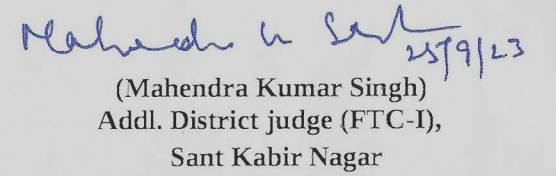 Mahendra K Singh
25/9/23
(Mahendra Kumar Singh)
Addl. District judge (FTC-I),
Sant Kabir Nagar